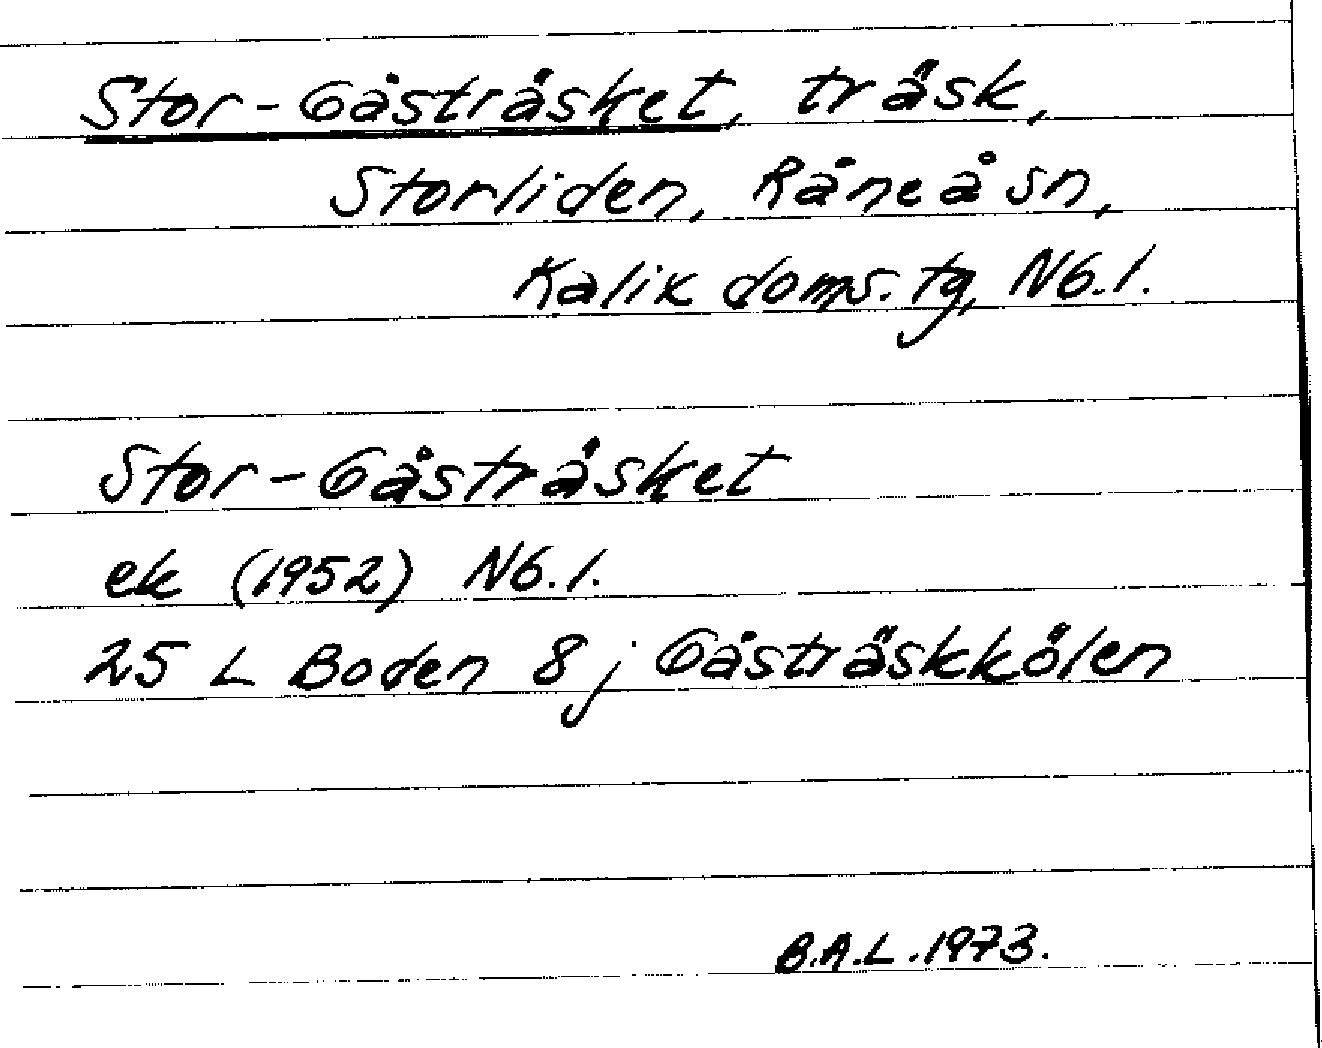 Stor-Gåsträsket, träsk,
Storliden, Råneå sn,
Kalix doms. tg, Nb. l.
Stor-Gåsträsket
ek (1952) Nb. l.
25 L Boden 8 j Gåsträskkölen
B.A.L. 1973.